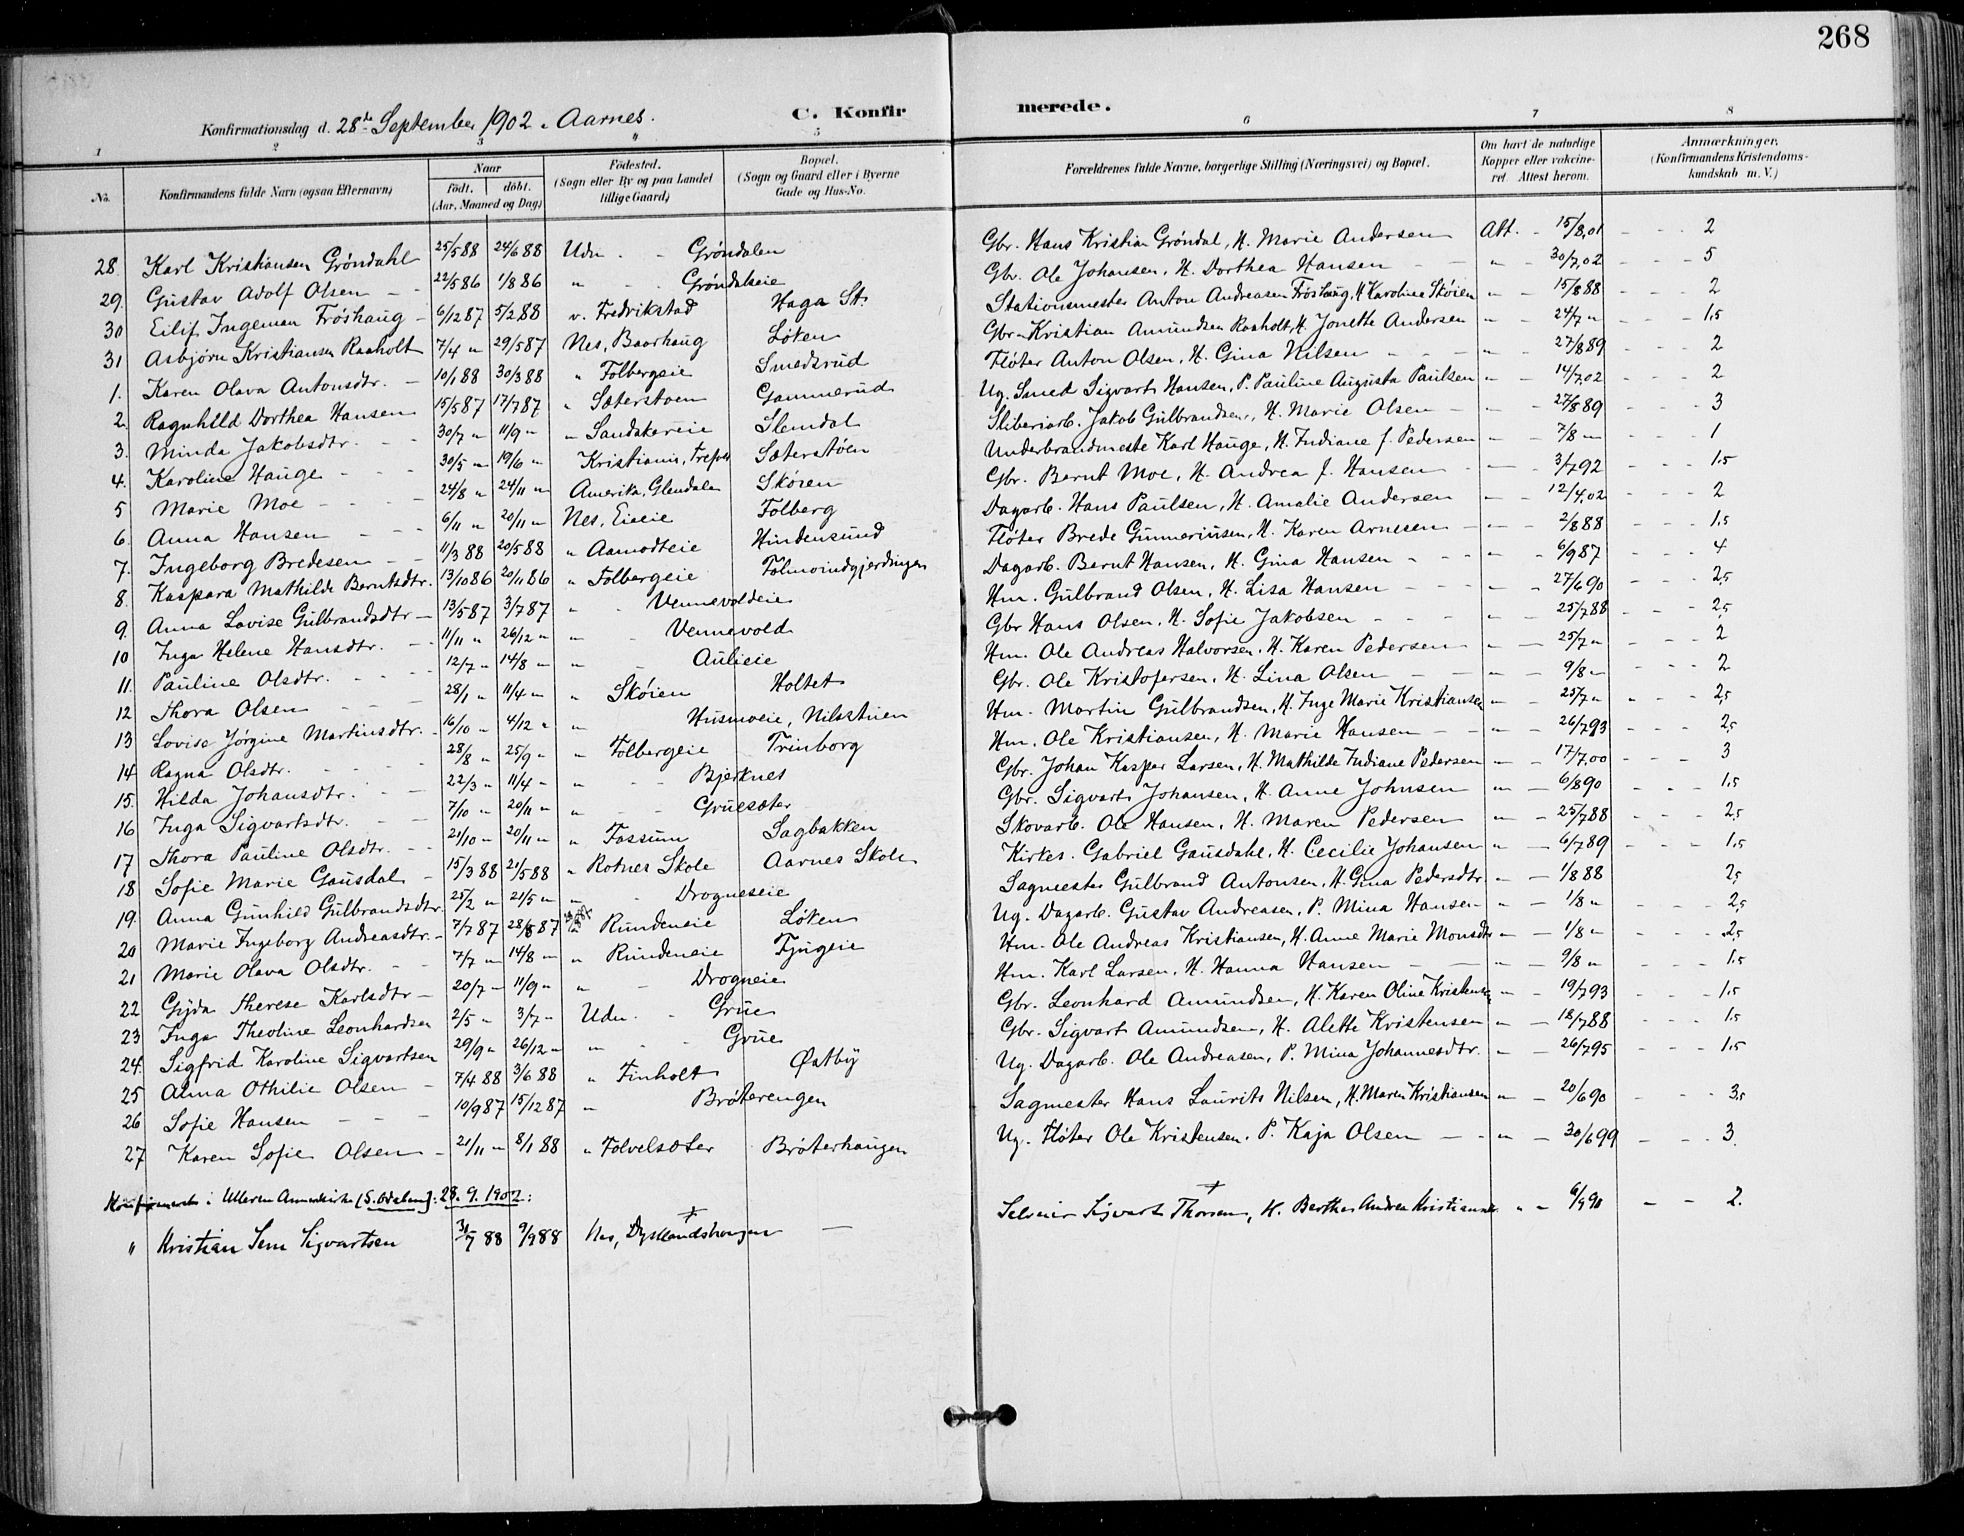 268
Konfirmationsdag d. 28de September 1902 i Aarnes.
C. Konfirmerede.
1 2 3 4 5 6 7 8
No. Konfirmandens fulde Navn (ogsaa Efternavn) Naar født. døbt. (Aar, Maaned og Dag) Fødested. (Sogn eller By og paa Landet tillige Gaard) Bopæl. (Sogn og Gaard eller i Byerne Gade og Hus-No. Forældrenes fulde Navne, borgerlige Stilling (Næringsvei) og Bopæl. Om havt de naturlige Kopper eller vakcineret. Attest herom. Anmærkninger. (Konfirmandens Kristendomskundskab m. V.)
28. Karl Kristiansen Grøndahl 25/5 88 24/6 88 Udn. - Grøndalen Gbr. Hans Kristian Grøndal, H. Marie Andersen Att. - 15/8,01 - - - 2
29. Gustav Adolf Olsen - - 22/5 86 1/8 86 " - Grøndaleie Gbr. Ole Johansen, H. Dorthea Hansen - - " - 30/7,02 - - - 5
30 Eilif Ingeman Frøshaug - 6/12 87 5/2 88 v. Fredrikstad Haga St. Stationsmester Anton Andreasen Frøshaug, H. Karoline Skøien " - 15/8 88 - - - 2
31 Asbjørn Kristiansen Raaholt 7/4 " 29/5 87 Nes, Baarhaug Løken Gbr. Kristian Amundsen Raaholt, H. Jonette Andersen " - 24/7 " - - - 1,5
1. Karen Olava Antonsdtr. - 10/1 88 30/3 88 " Folbergeie Smedsrud Fløter Anton Olsen, H. Gina Nilsen - - - " - 27/8 89 - - - 2
2. Ragnhild Dorthea Hansen 15/5 87 17/7 87 " Sæterstøen Gammerud Ug. Smed Sigvart Hansen, P. Pauline Augusta Paulsen " - 14/7,02 - - - 2
3. Minda Jakobsdtr. - - 30/7 " 11/9 " " Sandakereie Slemdal Sliberiarb. Jakob Gulbrandsen, H. Marie Olsen - " - 27/8 89 - - - 3
4. Karoline Hauge - - - 30/5 " 19/6 " Kristiania, Trefol. Sæterstøen Underbrandmeste Karl Hauge, H. Indiane f. Pedersen " - 7/8 " - - - 1
5 Marie Moe - - - 24/8 " 24/11 " Amerika, Glendale Skøien Gbr. Bernt Moe, H. Andrea f. Hansen - " - 3/7 92 - - - 1,5
6. Anna Hansen - - - 6/11 " 20/11 " Nes, Eieie Folberg Dagarb. Hans Paulsen, H. Amalie Andersen " - 12/4,02 - - - 2
7. Ingeborg Bredesen - - 11/3 88 20/5 88 " Aamodteie Hindensund Fløter Brede Gunneriusen, H. Karen Arnesen - " - 2/8 88 - - - 1,5
8. Kaspara Mathilde Berntsdtr. 13/10 86 20/11 86 " Folbergeie Dagarb. Bernt Hansen, H. Gina Hansen - - " - 6/9 87 - - - 4
9. Anna Lovise Gulbrandsdtr - 13/5 87 3/7 87 " - Vennevoldeie Hm. Gulbrand Olsen, H. Lisa Hansen - - - " - 27/6 90 - - - 2,5
10 Inga Helene Hansdtr. - - 11/11 " 26/12 " " - Vennevold Gbr Hans Olsen, H. Sofie Jakobsen - - - - " - 25/7 88 - - - 2,5
11. Pauline Olsdtr. - - - 12/7 " 14/8 " " - Aulieie Hm. Ole Andreas Halvorsen, H. Karen Pedersen - " - 25/7 " - - - 2
12 Thora Olsen - - - 28/1 " 11/4 " " Skøien Holtet Gbr. Ole Kristofersen, H. Lina Olsen - - - " - 9/8 " - - - 2
13 Lovise Jørgine Martinsdtr. - 16/10 " 4/12 " " Husmoeie, Nilsstuen Hm. Martin Gulbrandsen, H. Inge Marie Kristiansen " - 25/7 " - - - 2,5
14 Ragna Olsdtr. - - - - 28/8 " 25/9 " " Folbergeie Trinborg Hm. Ole Kristiansen, H. Marie Hansen - - " - 26/7 93 - - - 2,5
15. Hilda Johansdtr. - - - 22/3 " 11/4 " " - Bjerknes Gbr. Johan Kasper Larsen, H. Mathilde Indiane Pedersen " - 17/7,00 - - - 3
16 Inga Sigvartsdtr. - - 7/10 " 20/11 " " - Gruesæter Gbr. Sigvart Johansen, H. Anne Johnsen - " - 6/8 90 - - - 1,5
17 Thora Pauline Olsdtr. - - 21/10 " 20/11 " " Fossum Sagbakken Skovarb. Ole Hansen, H. Maren Pedersen - " - 25/7 88 - - - 2,5
18 Sofie Marie Gausdal - 15/3 88 21/5 88 " Rotnes Skole Aarnes Skole Kirkes. Gabriel Gausdahl, H. Cecilie Johansen " - 6/7 89 - - - 1,5
19. Anna Gunhild Gulbrandsdtr. 25/2 " 21/5 " " - Drogneseie Sagmester Gulbrand Antonsen, H. Gina Pedersdtr " - 1/8 88 - - - 2,5
20 Marie Ingeborg Andreasdtr. - 7/7 87 28/8 87 Rundeneie Løken Ug. Dagarb. Gustav Andreasen, P. Mina Hansen " - 1/8 " - - - 2,5
21 Marie Olava Olsdtr. - - 7/7 " 14/8 " " Rundeneie Tjugeie Hm. Ole Andreas Kristiansen, H. Anne Marie Monsdtr " - 1/8 " - - - 2,5
22 Gyda Therese Karlsdtr - 20/7 " 11/9 " " - Drogneeie Hm. Karl Larsen, H. Hanna Hansen - - - " - 9/8 " - - - 1,5
23 Inga Theoline Leonhardsen 2/5 " 3/7 " Udn. - Grue Gbr. Leonhard Amundsen, H. Karen Oline Kristensen " - 19/7 93 - - - 1,5
24. Sigfrid Karoline Sigvartsen 29/9 " 26/12 " " - Grue Gbr. Sigvart Amundsen, H. Alette Kristensen " - 18/7 88 - - - 1,5
25 Alma Othilie Olsen - 7/4 88 3/6 88 " Finholt Østby Ug. Dagarb. Ole Andreasen, P. Mina Johannesdtr. " - 26/7 95 - - - 1,5
26 Sofie Hansen - - - 10/9 87 15/12 87 " Brøterengen Sagmester Hans Laurits Nilsen, H. Maren Kristiansen " - 20/6 90 - - - 3,5
27 Karen Sofie Olsen - 21/11 " 8/1 88 " Folvelsæter Brøterhaugen Ug. Fløter Ole Kristensen, P. Kaja Olsen - - " - 30/6 99 - - - 3.
Konfirmeret i Ulleren Annexkirke (S. Odalen): 28. 9. 1902:
" Kristian Sem Sigvartsen 31/7 88 9/9 88 Nes, - Selveier Sigvart Thorsen, H. Berthe Andrea Kristiansd. " - 6/9 90 - - 2.